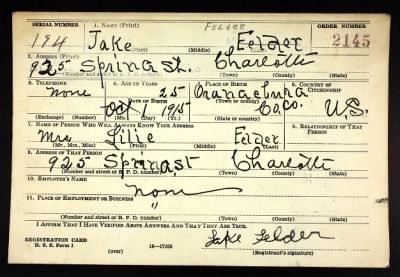 SERIAL NUMBER 1. NAME (Print) FELDER ORDER NUMBER
194 Jake Felder 2145
(First) (Middle) (Last)
2. ADDRESS (Print)
925 Spring St. Charlotte
(Number and street or R. F. D. number) (Town) (County) (State)
3. TELEPHONE 4. AGE IN YEARS 5. PLACE OF BIRTH 6. COUNTRY OF CITIZENSHIP
None 25 Orangeburg
DATE OF BIRTH (Town or county)
Oct 1 1915 Co. U.S.
(Exchange) (Number) (Mo.) (Day) (Yr.) (State or country)
7. NAME OF PERSON WHO WILL ALWAYS KNOW YOUR ADDRESS 8. RELATIONSHIP OF THAT PERSON
Mrs Lilie Felder
(Mr., Mrs., Miss) (First) (Middle) (Last)
9. ADDRESS OF THAT PERSON
925 Spring St Charlotte
(Number and street or R. F. D. number) (Town) (County) (State)
10. EMPLOYER'S NAME
None
11. PLACE OF EMPLOYMENT OR BUSINESS
"
(Number and street or R. F. D. number) (Town) (County) (State)
I AFFIRM THAT I HAVE VERIFIED ABOVE ANSWERS AND THAT THEY ARE TRUE.
REGISTRATION CARD
D. S. S. Form 1 (over) 16—17105 Jake Felder
(Registrant's signature)